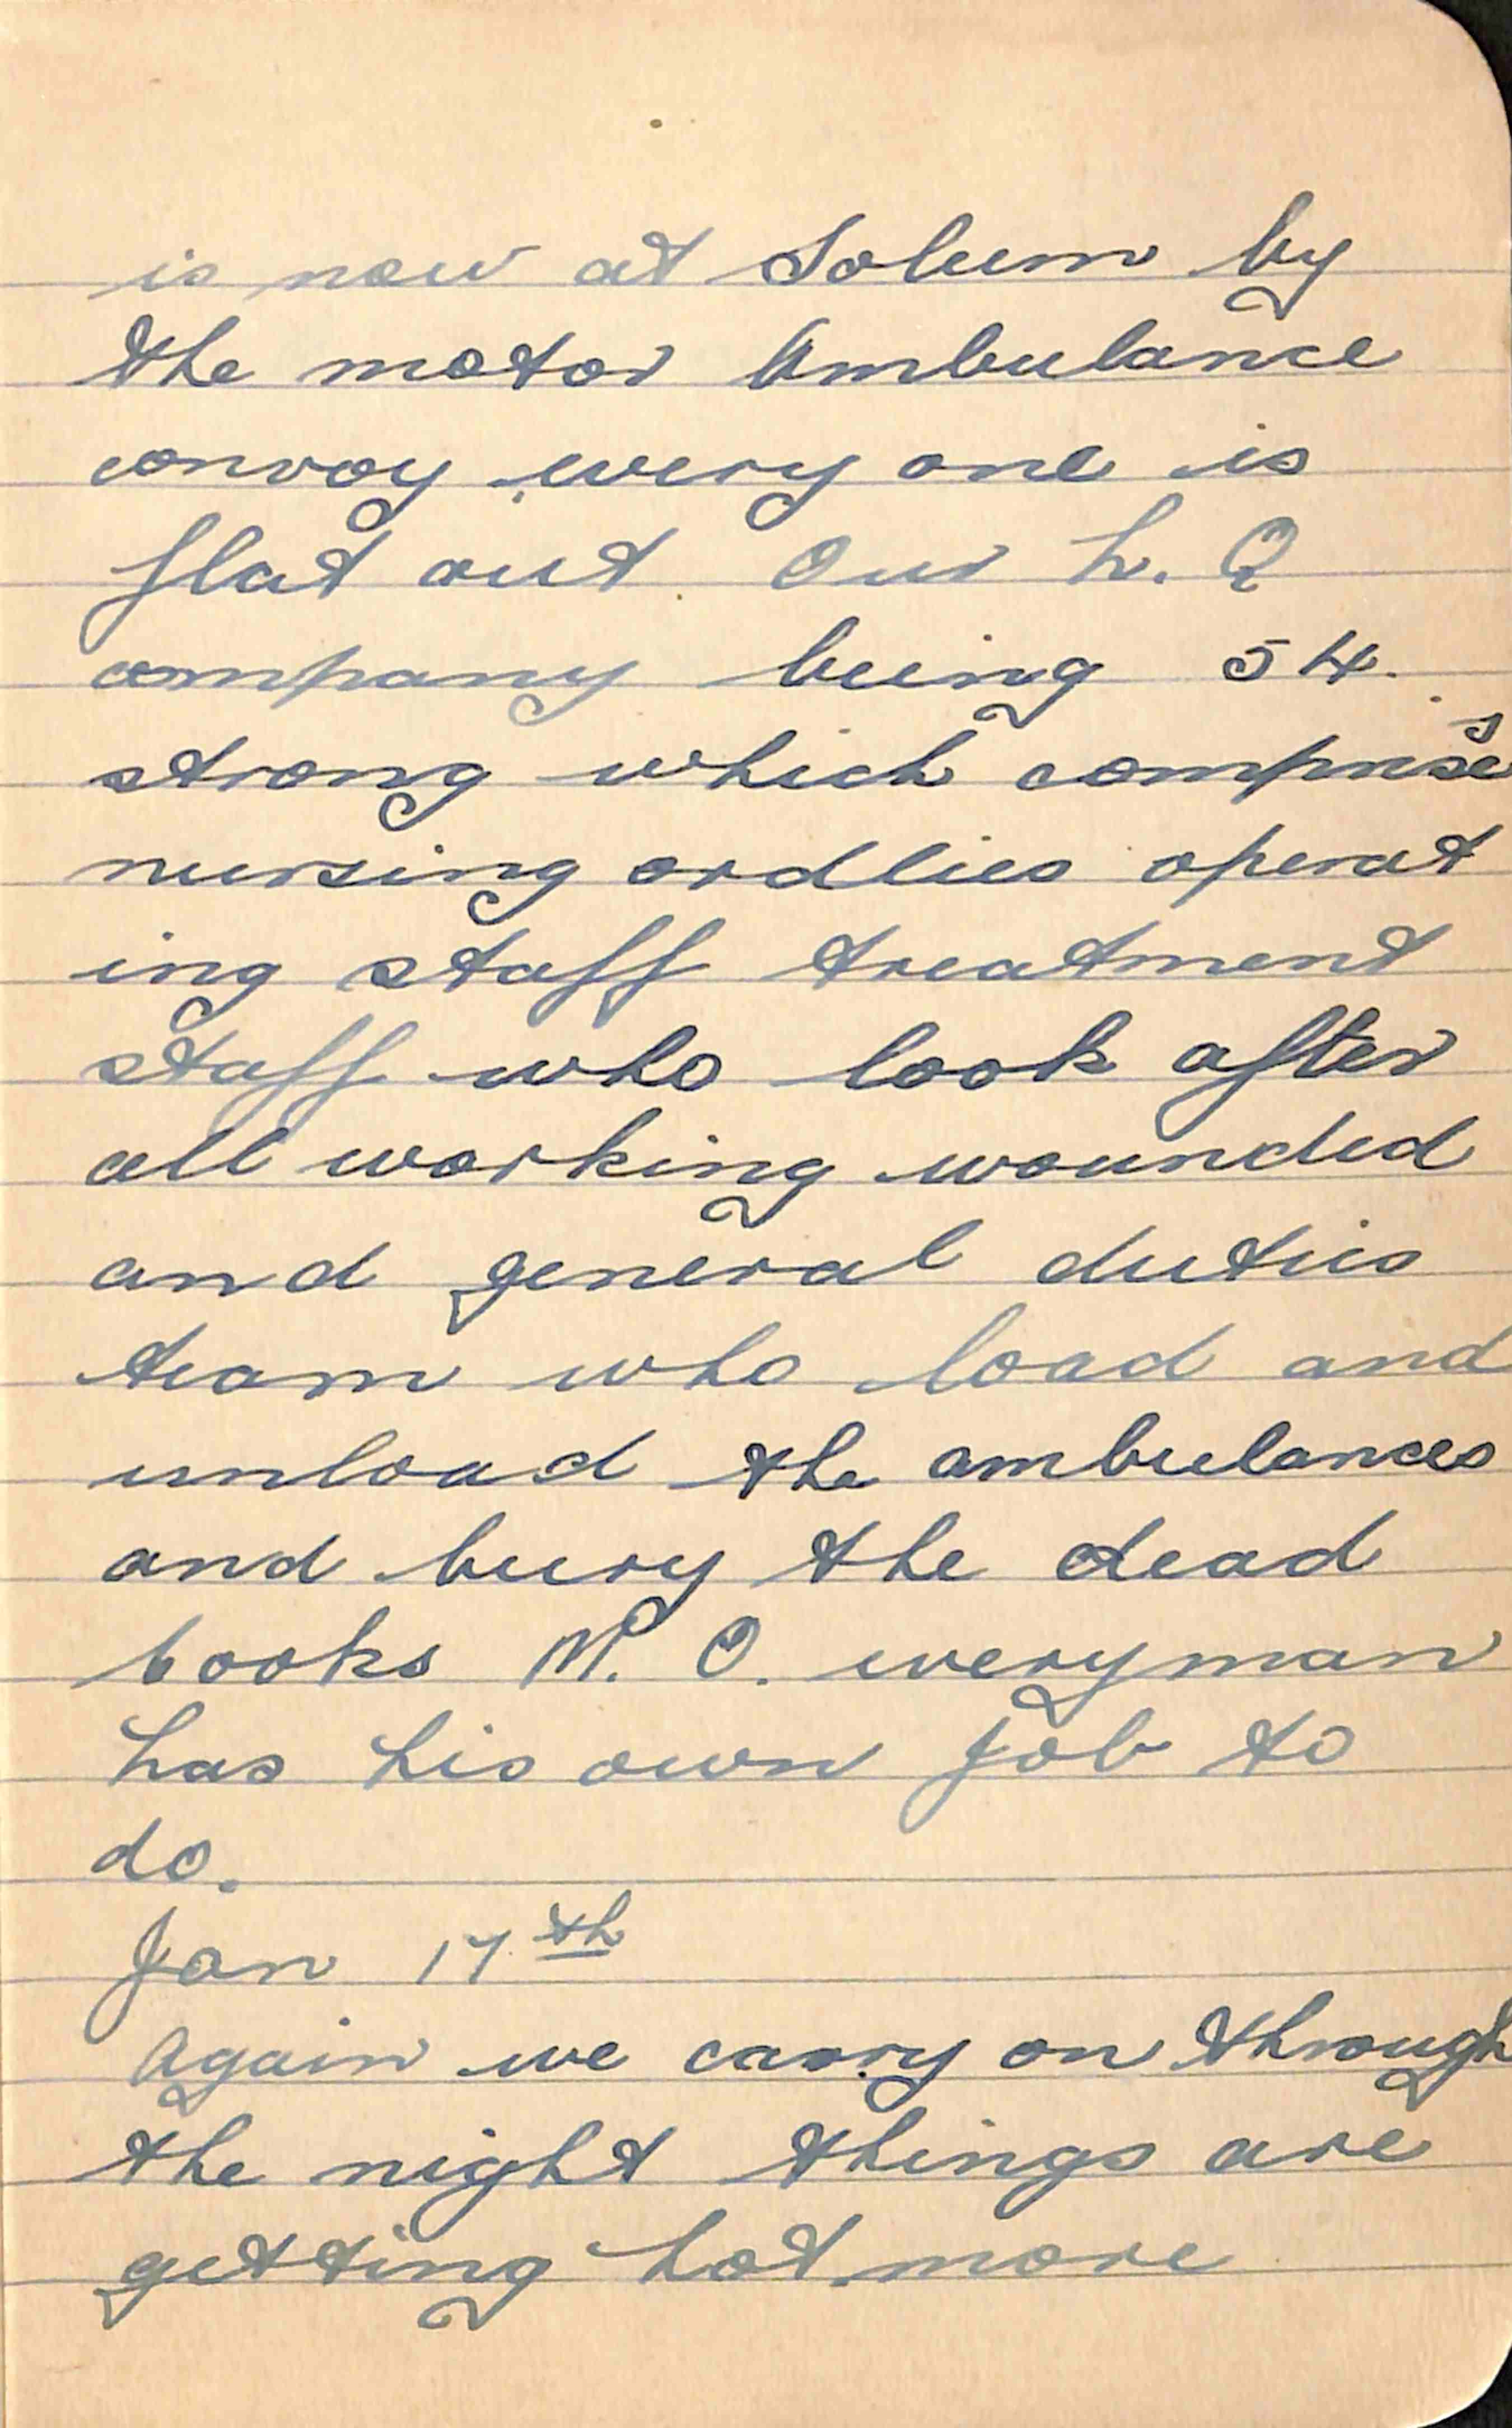 is now at Solum by
the motor Ambulance
convoy every one is
flat out. Our h. Q
company being 54.
strong which comprises
nursing ordlies operat
ing staff treatment
staff who look after
all working wounded
and general duties
team who load and
unload the ambulances
and bury the dead
books M. O. everyman
has his own job to
do.
Jan 17th
Again we carry on through
the night things are
getting hot more